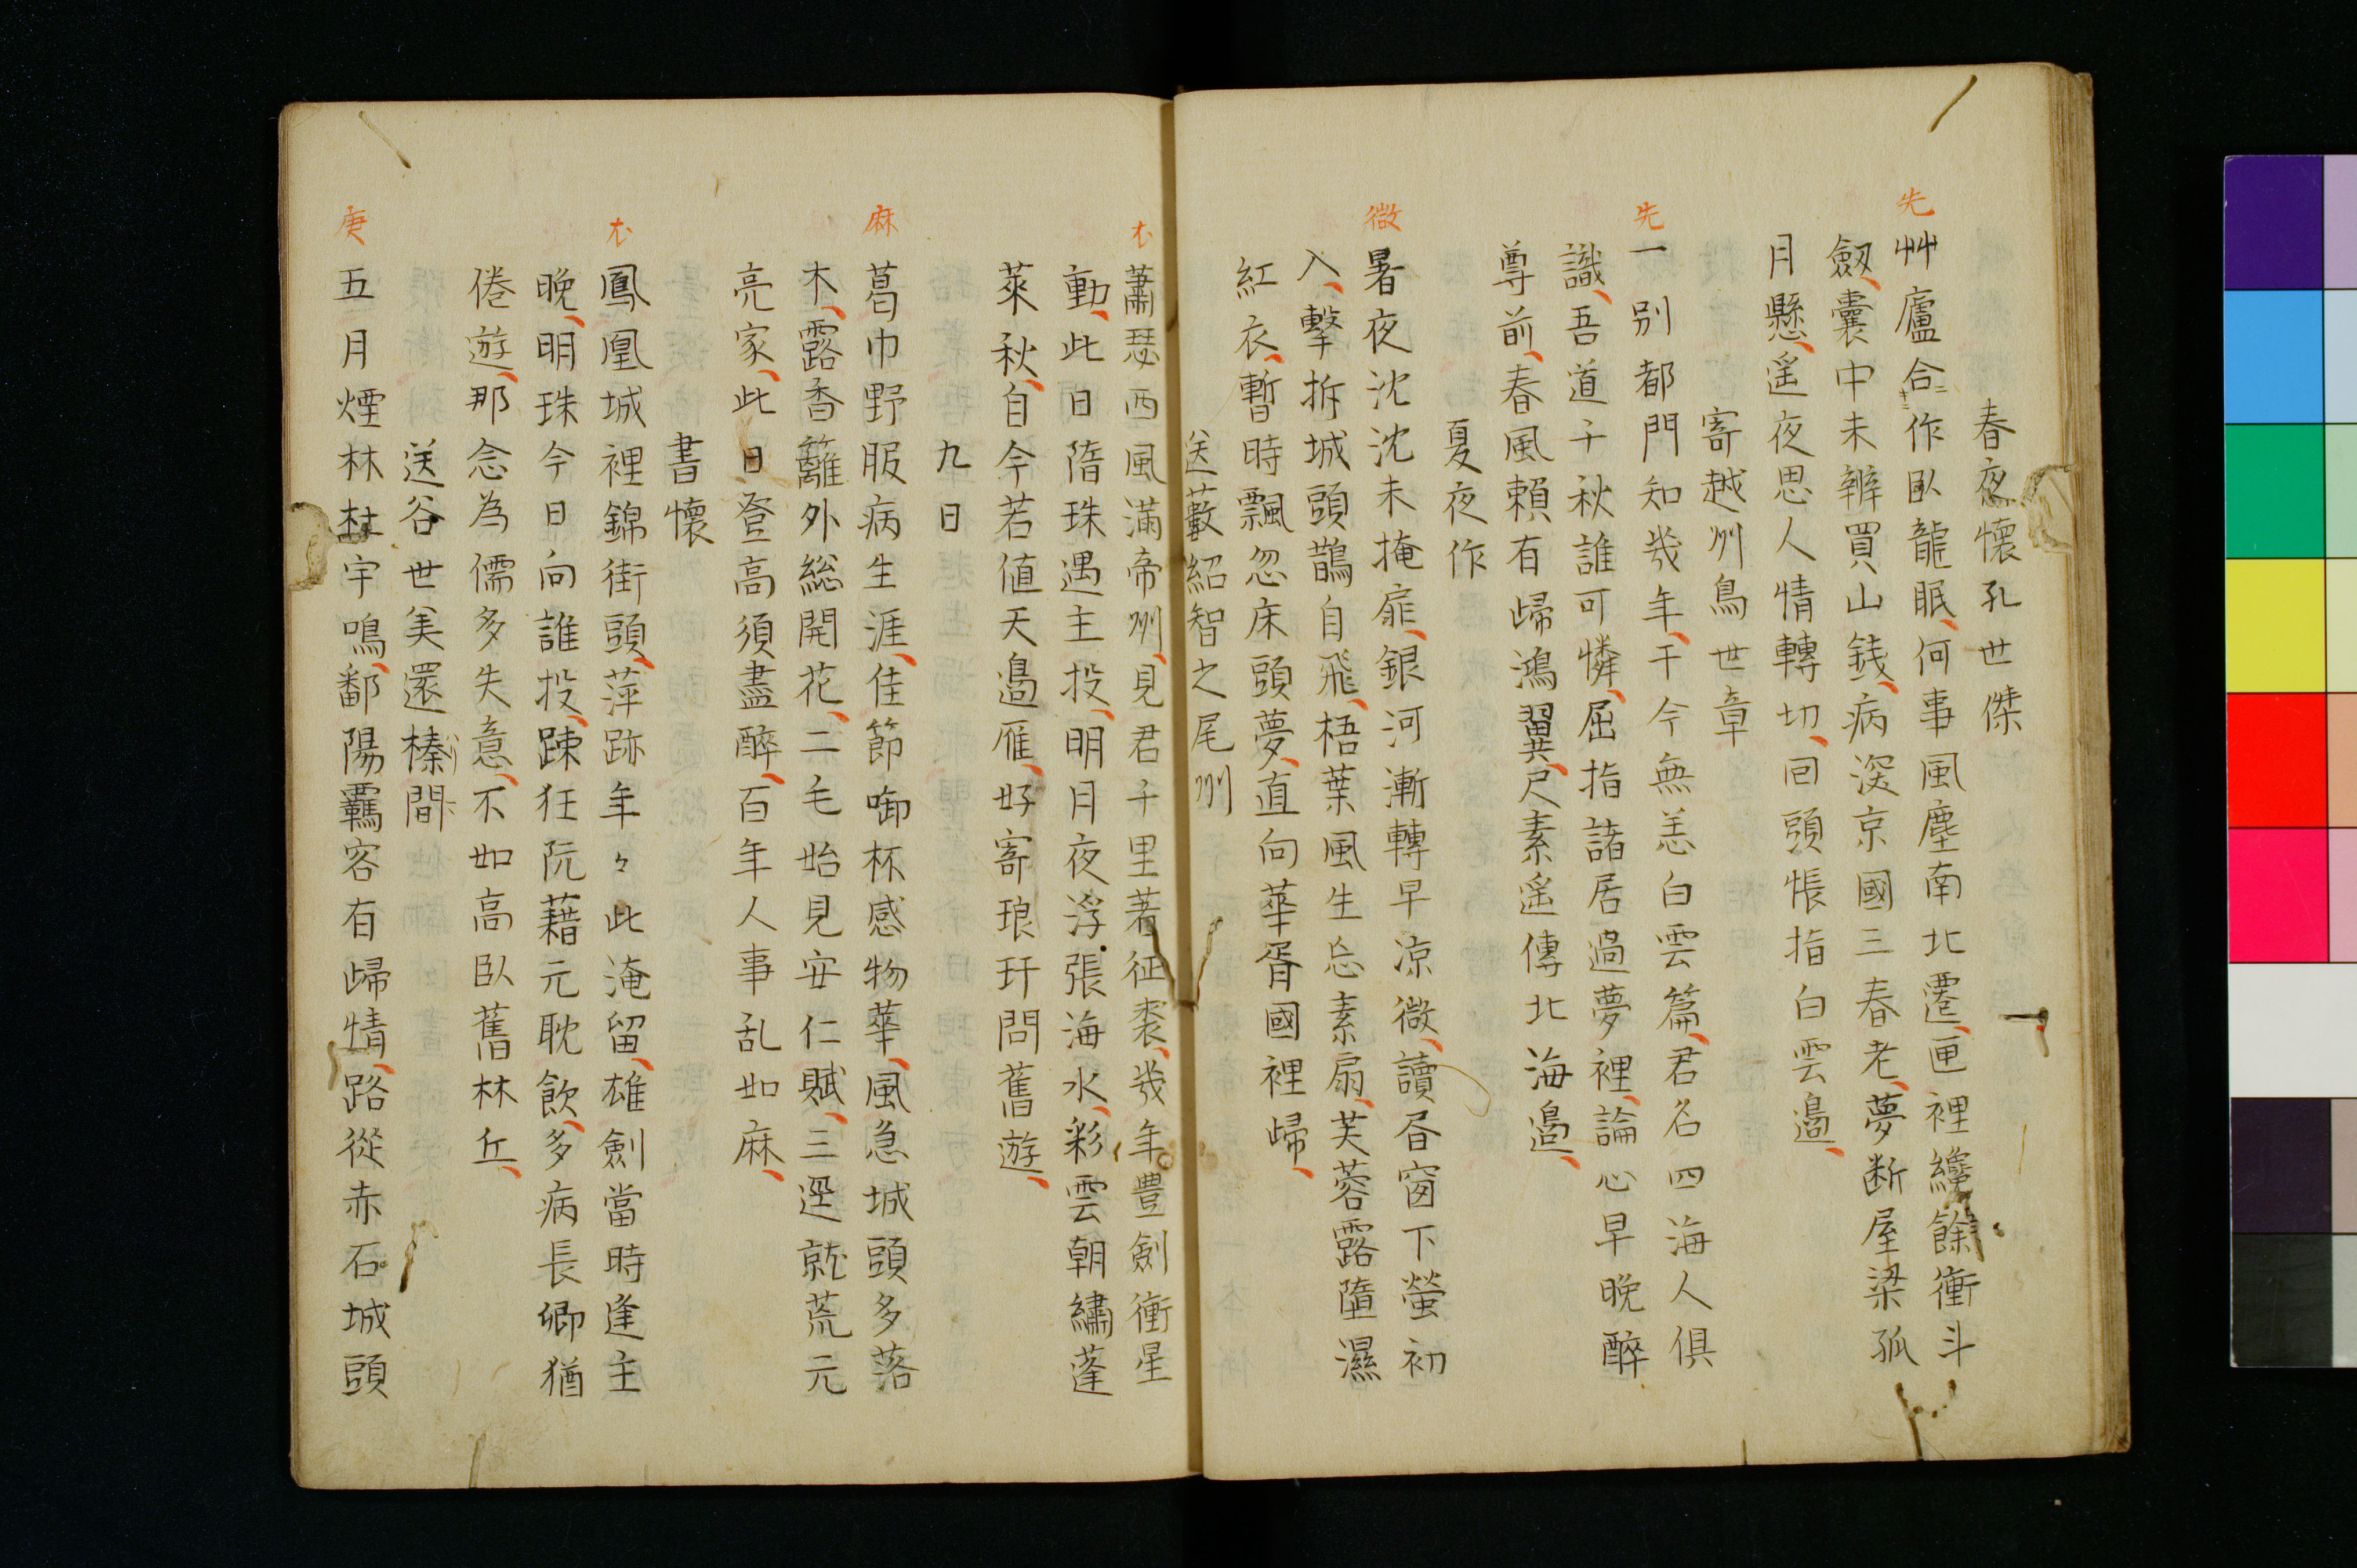 春夜懷孔世傑
先
艸廬合作臥龍眠何事風塵南北遷匣裡纔餘衝斗
劔囊中未辨買山銭病深京國三春老夢断屋梁孤
月懸遥夜思人情轉切回頭悵指白雲邉
寄越州鳥世章
先
一別都門知幾年于今無恙白雲篇君名四海人俱
識吾道千秋誰可憐屈指諸居過夢裡論心早晩醉
尊前春風頼有歸鴻翼尺素遥傳北海邉
夏夜作
微
暑夜沈沈未掩扉銀河漸轉早凉微讀昏窗下螢初
入擊柝城頭鵲自飛梧葉風生忘素扇芙蓉露墮濕
紅衣暫時飄忽床頭夢直向華胥國裡歸
送藪紹智之尾州
尤
蕭瑟西風滿帝州見君千里著征裘幾年豊劍衝星
動此日隋珠遇主投明月夜浮張海水彩雲朝繡蓬
萊秋自今若値天邉雁好寄琅玕問舊遊
九日
麻
葛巾野服病生涯佳節啣杯感物華風急城頭多落
木露香籬外総開花二毛始見安仁賦三逕就荒元
亮家此日登高須盡醉百年人事乱如麻
書懷
尤
鳳凰城裡錦街頭萍跡年々此淹留雄劍當時逢主
晩明珠今日向誰投踈狂阮藉元耽飲多病長卿猶
倦遊那念為儒多失意不如高臥舊林丘
送谷世美還榛間
庚
五月煙林杜宇鳴鄱陽覊客有歸情路從赤石城頭